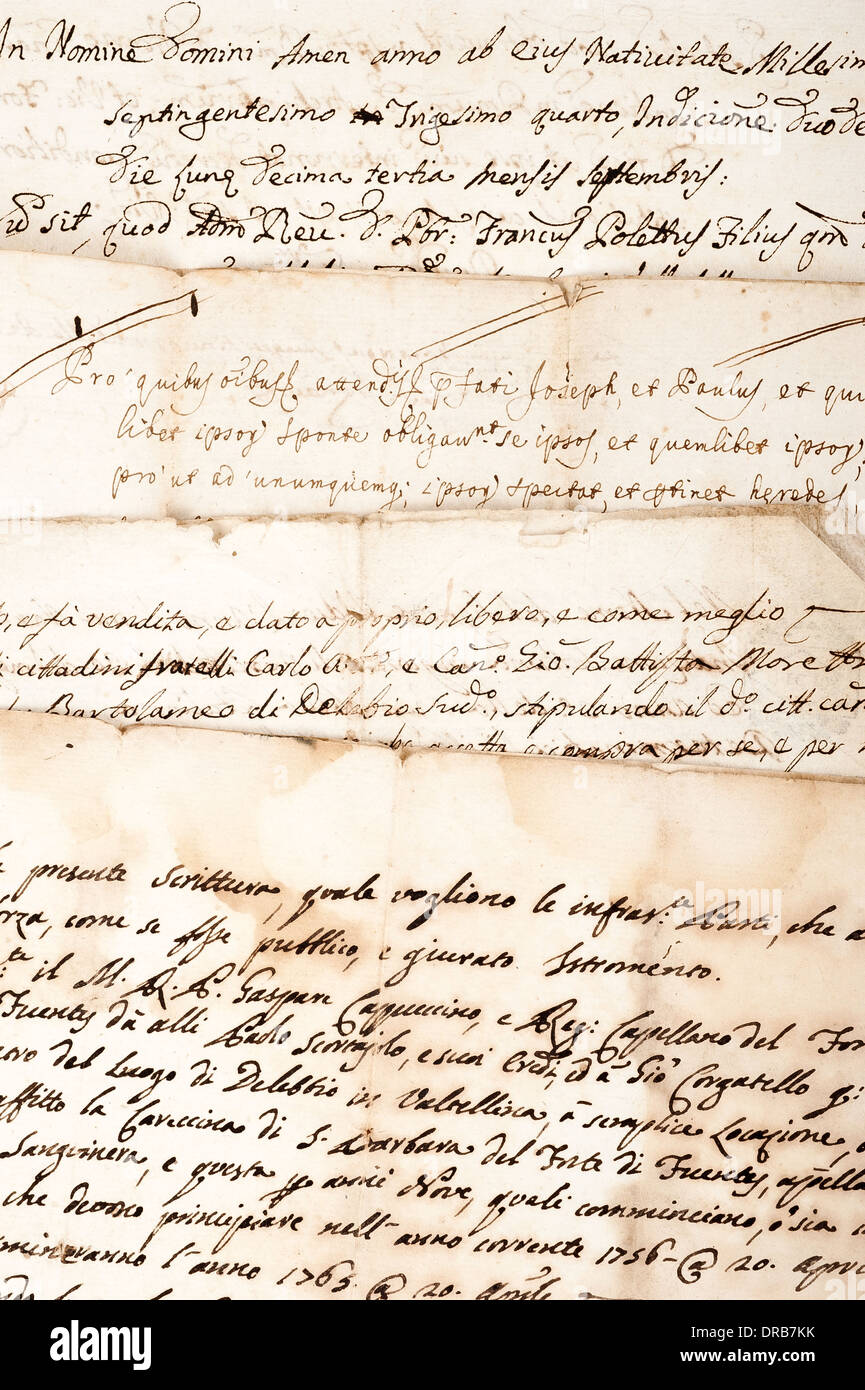 In Nomine Domini Amen anno ab eius Nativitate Millesim
septingentesimo Trigesimo quarto, Indicione duode
die Lunę decima tertia mensis septembris:
sit, quod Adm Reu. D. Pbr: Francus Polettus Filius qm
Pro' quibus oībus attend:s pfati Joseph, et Paulus, et qui
libet ipsoꝝ sponte obligauⁿᵗ se ipsos, et quemlibet ipsoꝝ,
pro' ut ad' unumquemq; ipsoꝝ spectat, et ꝑtinet heredes,
, e fà vendita, e dato a proprio, libero, e come meglio
cittadini fratelli Carlo e Canº: Giō. Battista More
Bartolameo di Delebio sudº, stipulando il dº citt. can
accetta e compra per se, e per
presente scrittura, quale vogliono le infras:ᵗᵉ Parti, che a
rza, come se fosse pubblico, e giurato Istromento.
il M. R. P. Gaspare Capuccino, e Reg: Capellano del For
Fuentes dā alli Paolo e suoi Eredi, ed ā Gioº Corgatello q:
del Luogo di Delebbio in Valtellina, ā semplice Locazione,
affitto la Careccina di S. Barbara del Forte di Fuentes, appella
Sanguinera, e questa ꝑ anni Nove, quali comminciano, o' sia
che devono principiare nell' anno corrente 1756 - @ 20. apri
mineranno l'anno 1765. @ 20. Aprile
alamy
alamy stock photo
DRB7KK
www.alamy.com